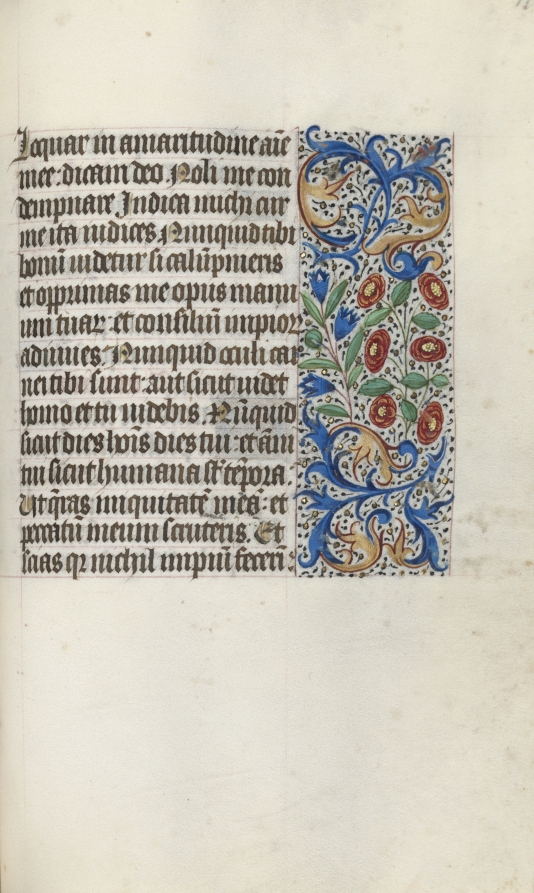 Loquar in amaritudine aīe
mee: dicam deo Noli me con
dempnare Indica michi cur
me ita iudices Nunquid tibi
bonū uidetur si calūpnieris
et opprimas me opus manu
um tuaꝝ: et consiliū impioꝝ
adiuues. Nunquid oculi car
nei tibi sunt: aut sicut uidet
homo et tu uidebis. Nūquid
sicut dies hoīs dies tui: et āni
tui sicut humana sūt tēpora.
Ut q̄ras iniquitatē meā: et
peccatū meum scruteris. Et
scias qꝛ nichil impiū fecerī: